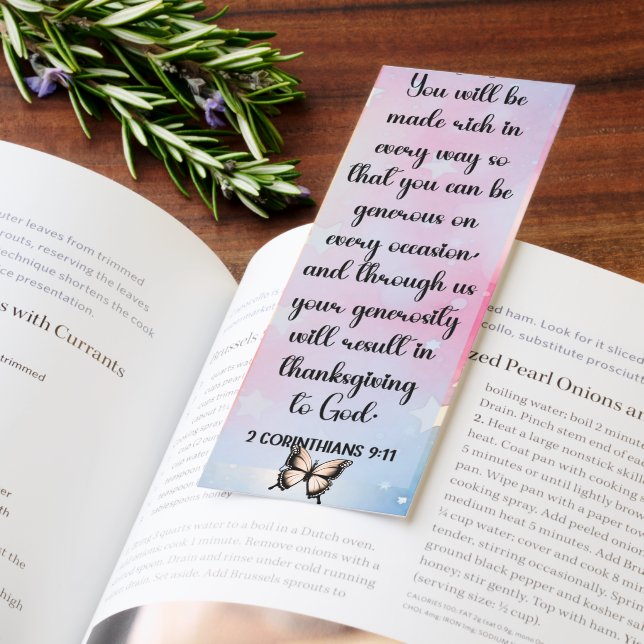 You will be
made rich in
every way so
that you can be
generous on
every occasion,
and through us
your generosity
will result in
thanksgiving
to God.
2 CORINTHIANS 9:11
uter leaves from trimmed
routs, reserving the leaves
echnique shortens the cook
ce presentation.
s with Currants
trimmed
the
high
Brussels
quarts water
cups
teaspoon
tablespoons honey
3 quarts water to a boil in a Dutch oven.
cook 1 minute. Remove onions with a
spoon. Drain and rinse under cold running
drain. Set aside. Add Brussels sprouts to
ed ham. Look for it sliced
collo, substitute prosciutt
zed Pearl Onions an
boiling water; boil 2 minute
Drain. Pinch stem end of ea
2. Heat a large nonstick skill
heat. Coat pan with cooking
5 minutes or until lightly brow
pan. Wipe pan with a paper tow
cooking spray. Add peeled onion
medium heat 5 minutes. Add Bru
¼ cup water; cover and cook 8 m
tender, stirring occasionally. Sprin
ground black pepper and kosher sa
honey; stir gently. Top with ham.
(serving size: ½ cup).
CALORIES 100, FAT 2g